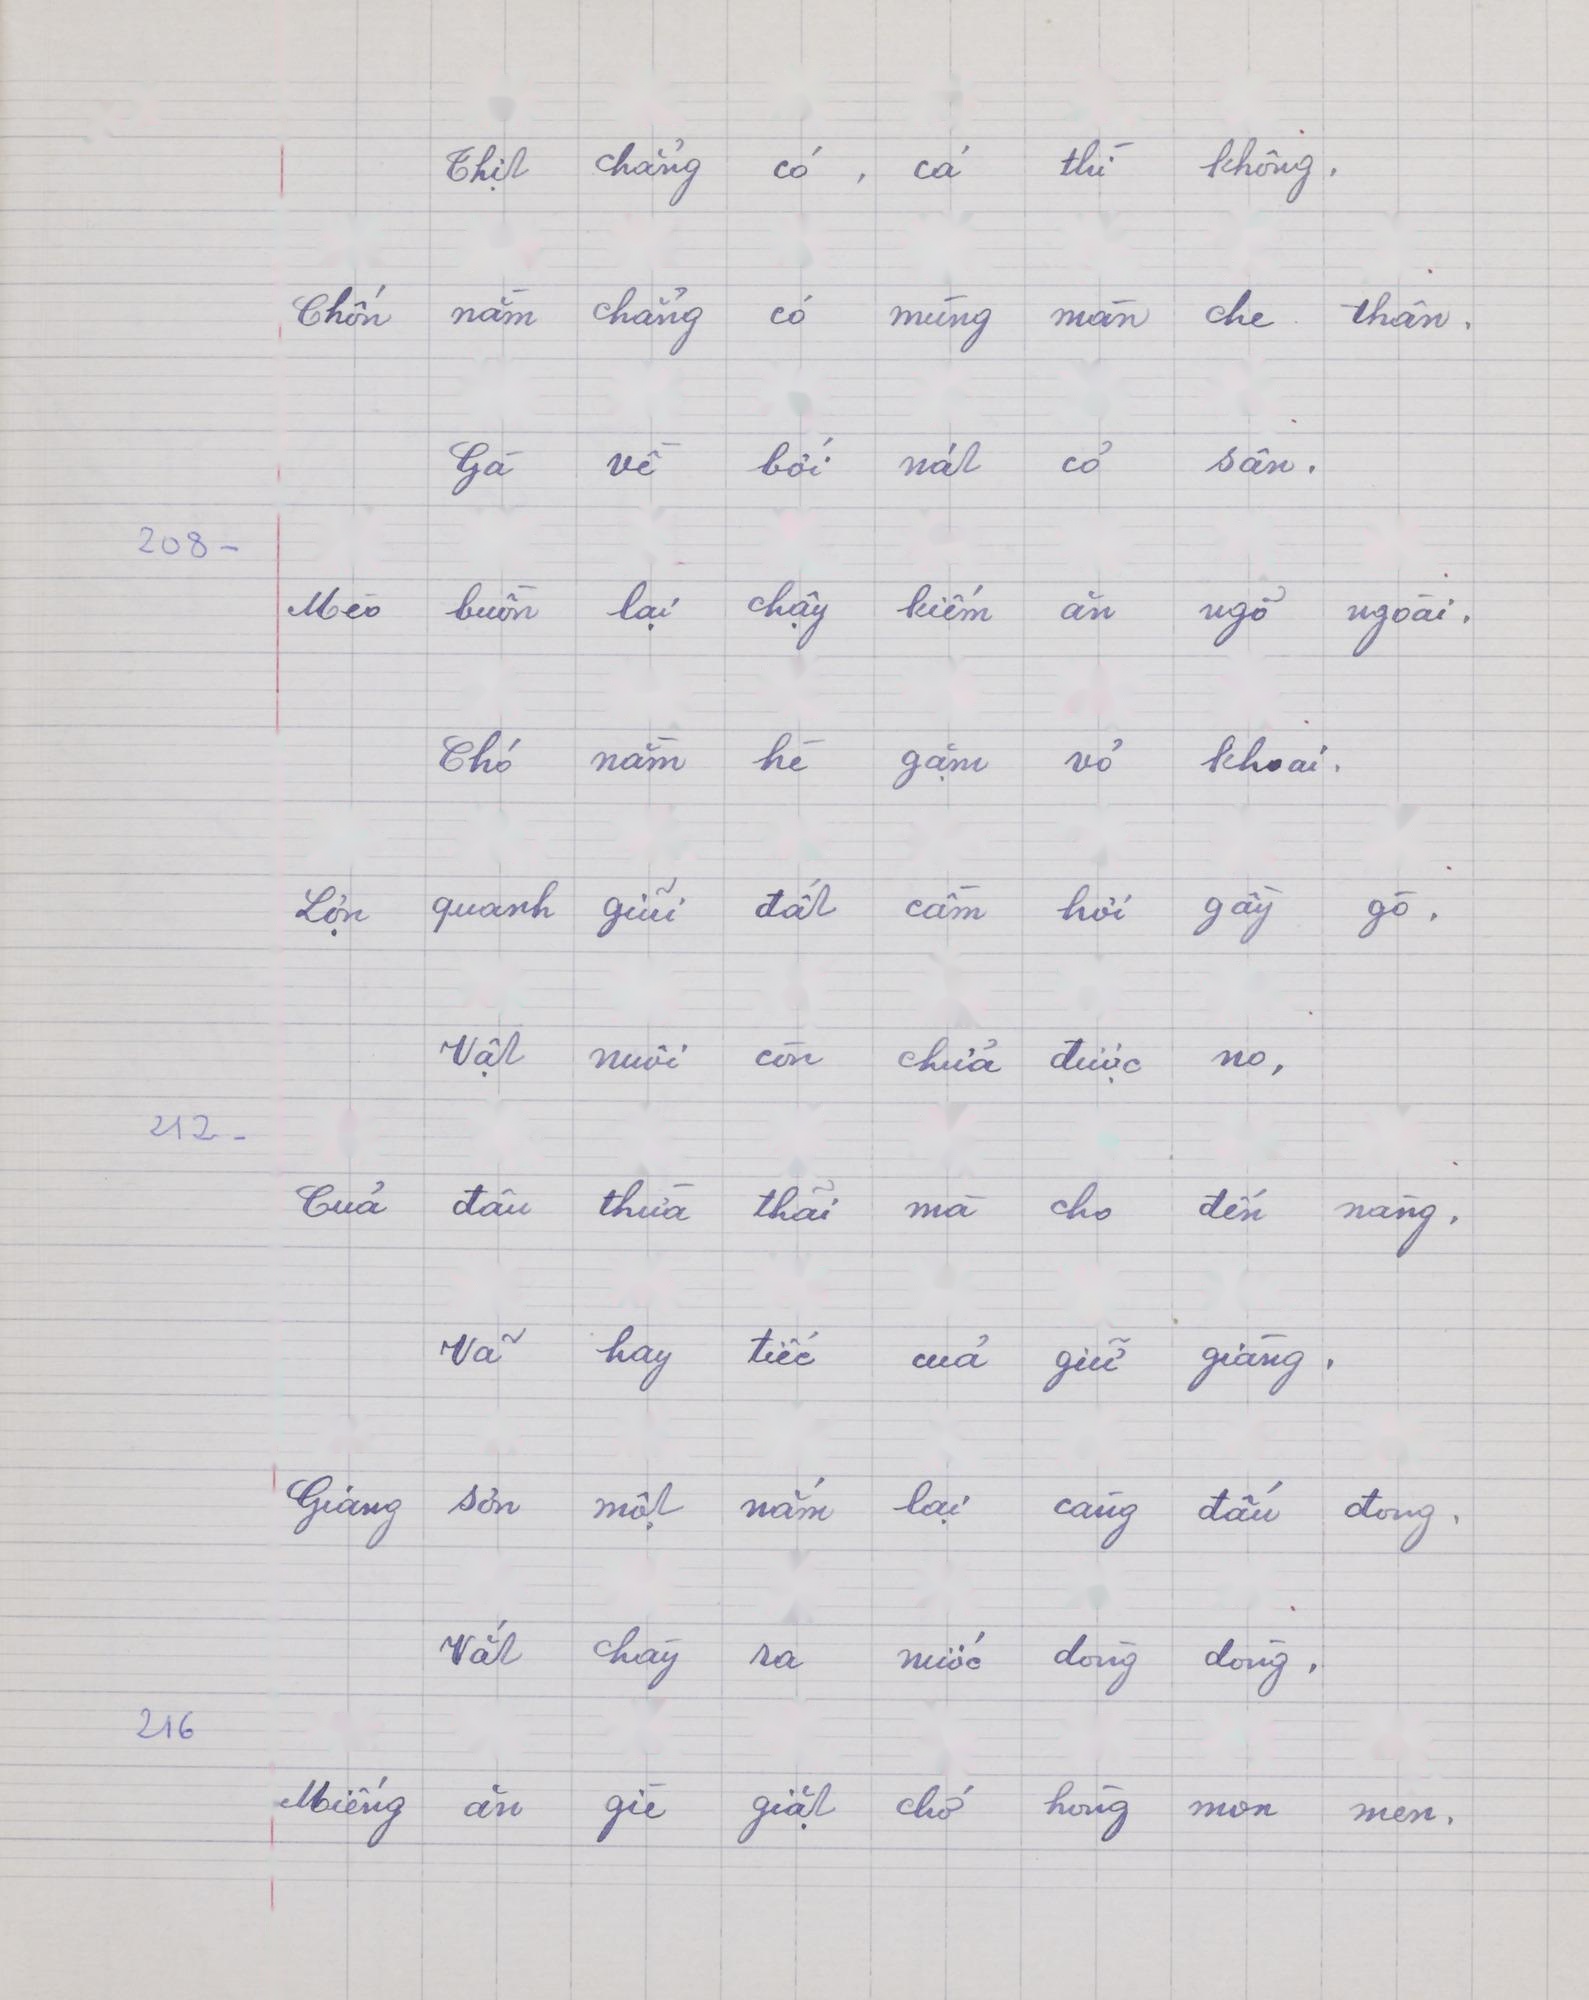 Thịt chẳng có, cá thì không.
Chốn nằm chẳng có mùng màn che thân.
Gà về bới nát cỏ sân.
208-
Mèo buồn lại chạy kiếm ăn ngõ ngoài.
Chó nằm hè gặm vỏ khoai.
Lợn quanh giũi đất cầm hơi gầy gò.
Vật nuôi còn chửa được no,
212-
Của đâu thừa thãi mà cho đến nàng.
Vã hay tiếc của giữ giàng.
Giang sơn một nắm lại càng đấu đong.
Vắt chày ra nước dòng dòng,
216
Miếng ăn giè giặt chớ hòng mon men.